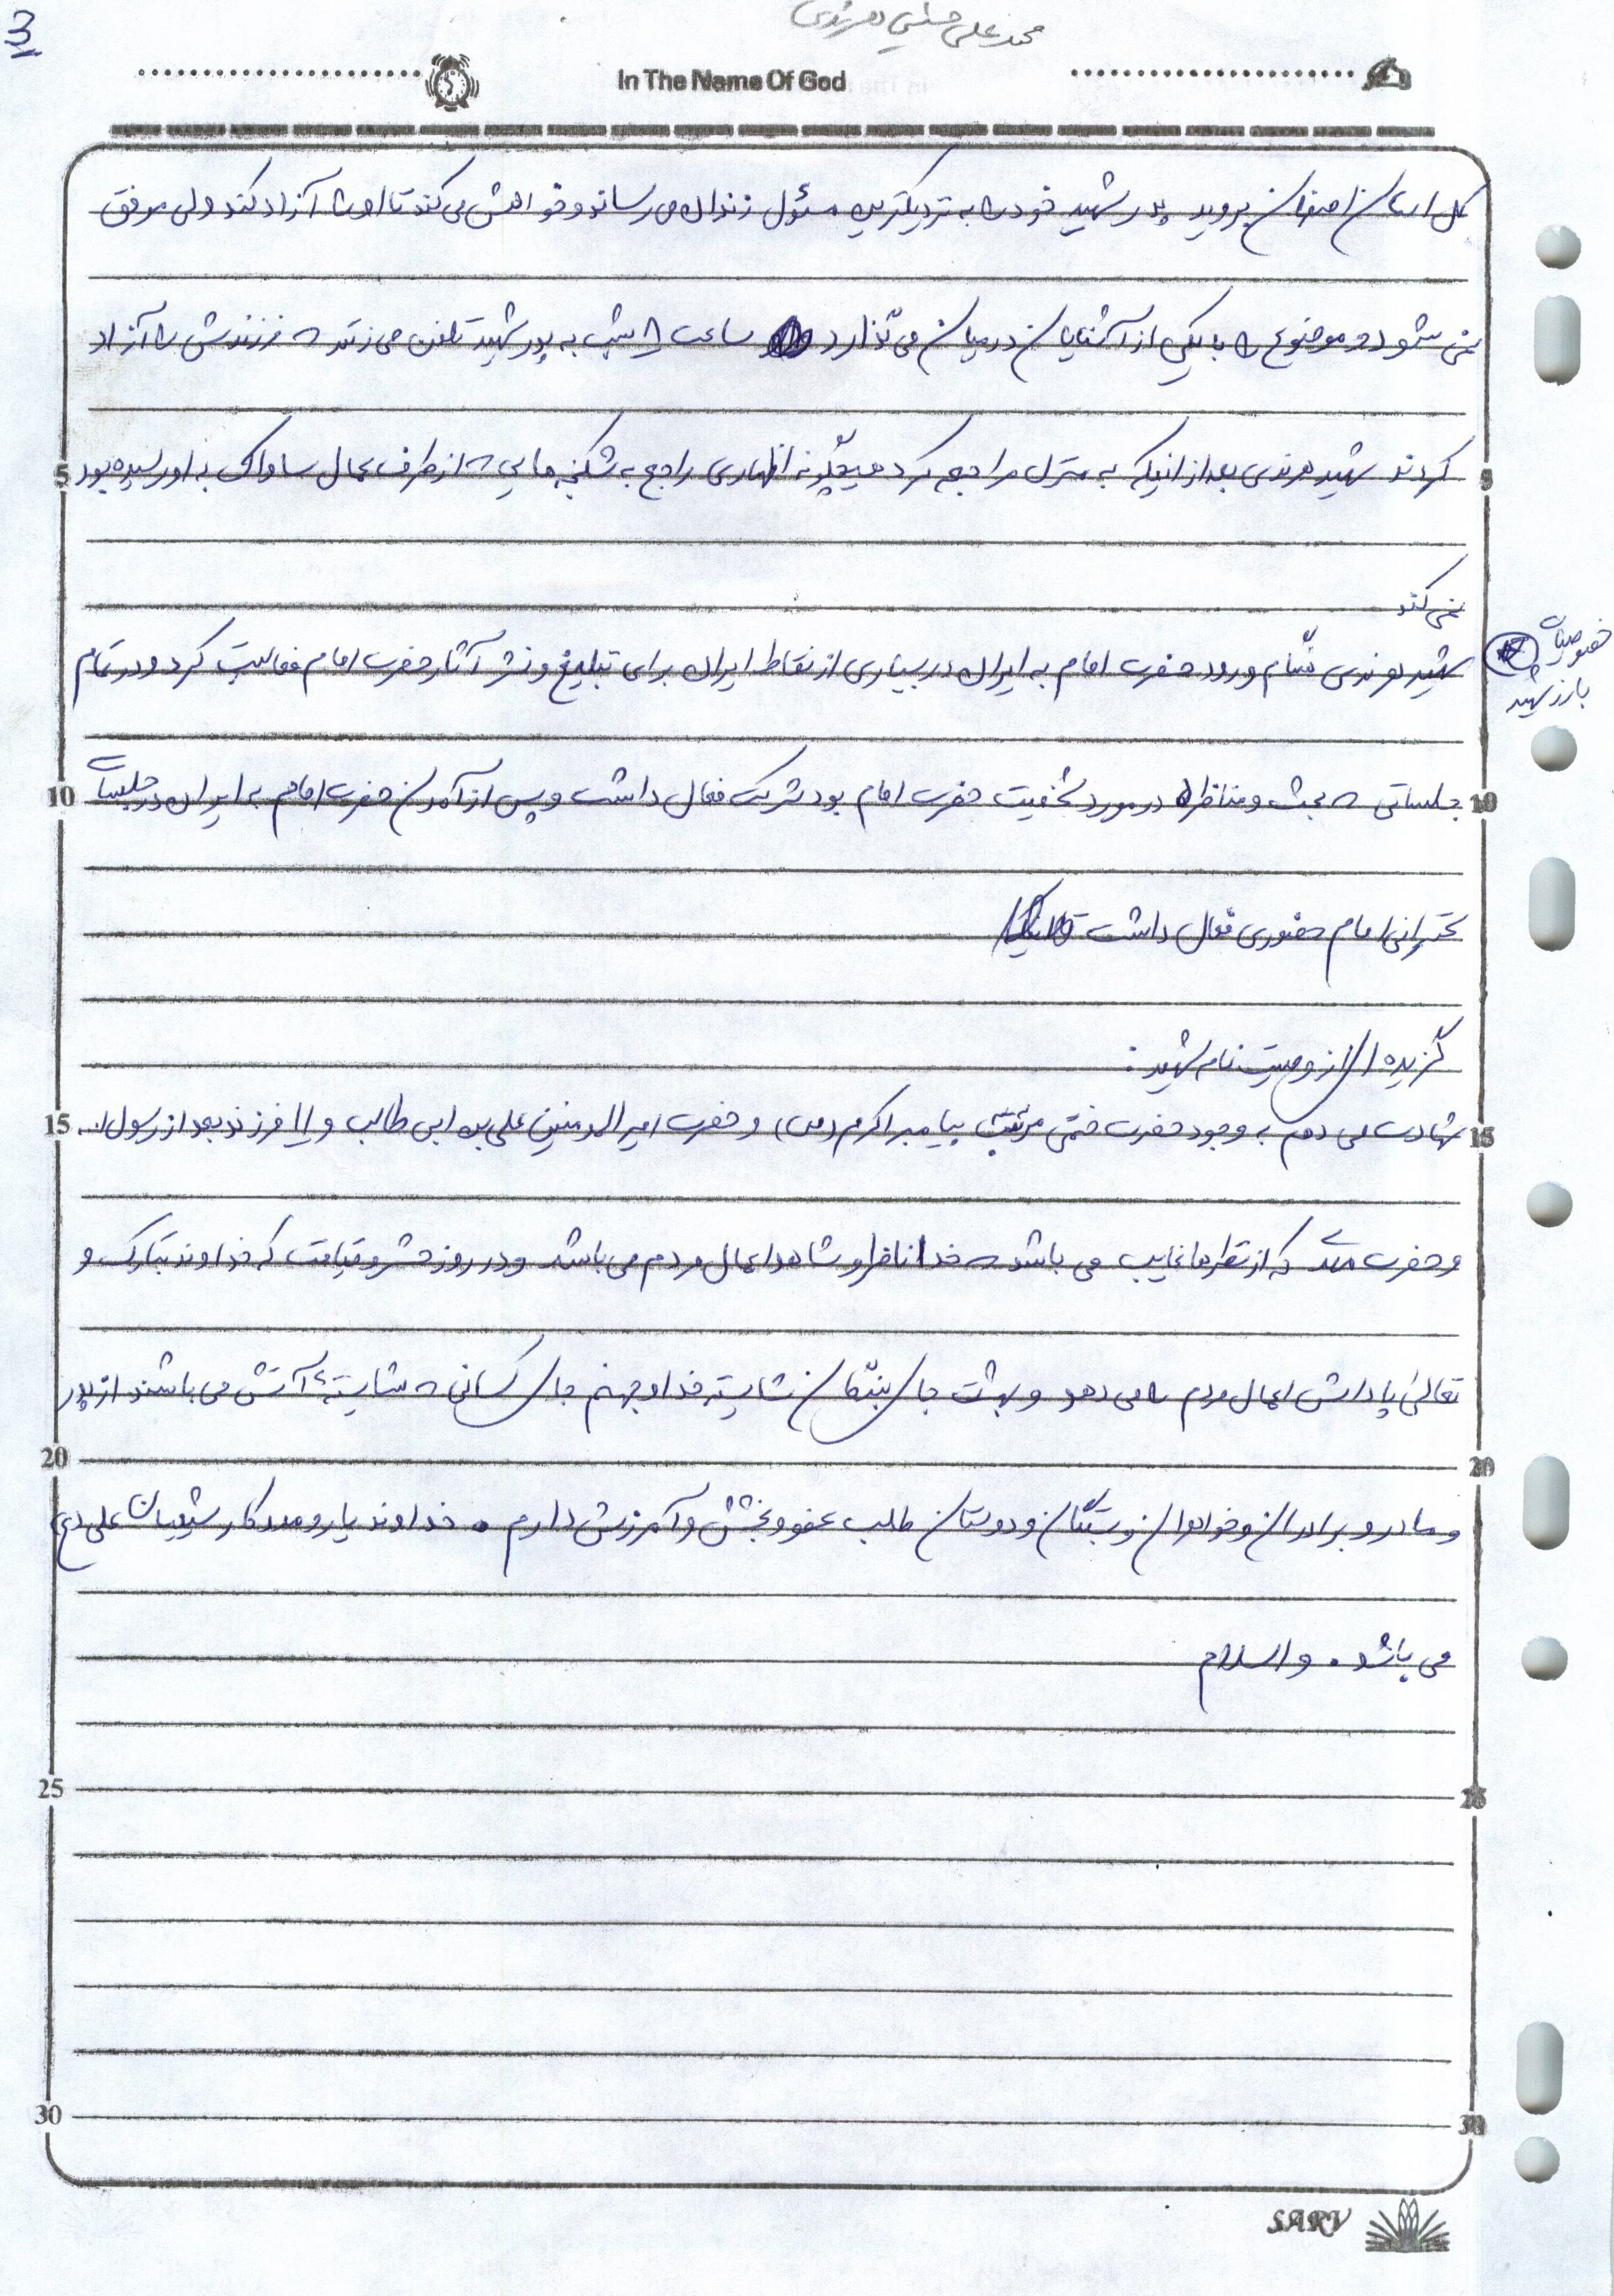 محمد علی حسنی هرندی
3
In The Name Of God
کل استان اصفهان بروید پدر شهید خود را به نزدیکترین مسئول زندان می رساند و خواهش می کند تا او را آزاد کند ولی موفق
نمی شود و موضوع را با یکی از آشنایان در میان می گذارد ساعت ۸ شب به پدر شهید تلفن می زنند که فرزندش را آزاد
5 کردند شهید هرندی بعد از اینکه به منزل مراجعه کرد هیچگونه اظهاری راجع به شکنجه هایی که از طرف عمال ساواک به او رسیده بود 5
نمی کند
خصوصیات بارز شهید
شهید هرندی هنگام ورود حضرت امام به ایران در بسیاری از نقاط ایران برای تبلیغ و نشر آثار حضرت امام فعالیت کرد و در تمام
10 جلساتی که بحث و مناظره در مورد شخصیت حضرت امام بود شرکت فعال داشت و پس از آمدن حضرت امام به ایران در جلسات 10
سخنرانی امام حضوری فعال داشت
گزیده ای از وصیت نامه شهید :
15 شهادت می دهم به وجود حضرت ختمی مرتبت پیامبر اکرم (ص) و حضرت امیر المومنین علی بن ابی طالب و ۱۱ فرزند بعد از رسول ا... 15
و حضرت مهدی که از نظرها غایب می باشد که خدا ناظر و شاهد اعمال مردم می باشد و در روز حشر و قیامت که خداوند تبارک و
تعالی پاداش اعمال مردم را می دهد و بهشت جای بندگان شایسته خدا و جهنم جای کسانی که شایسته آتش می باشند از پدر
20 20
و مادر و برادران و خواهران و بستگان و دوستان طلب عفو و بخشش و آمرزش دارم . خداوند یار و مددکار شیعیان علی (ع)
می باشد . والسلام
25 25
30 30
SARV